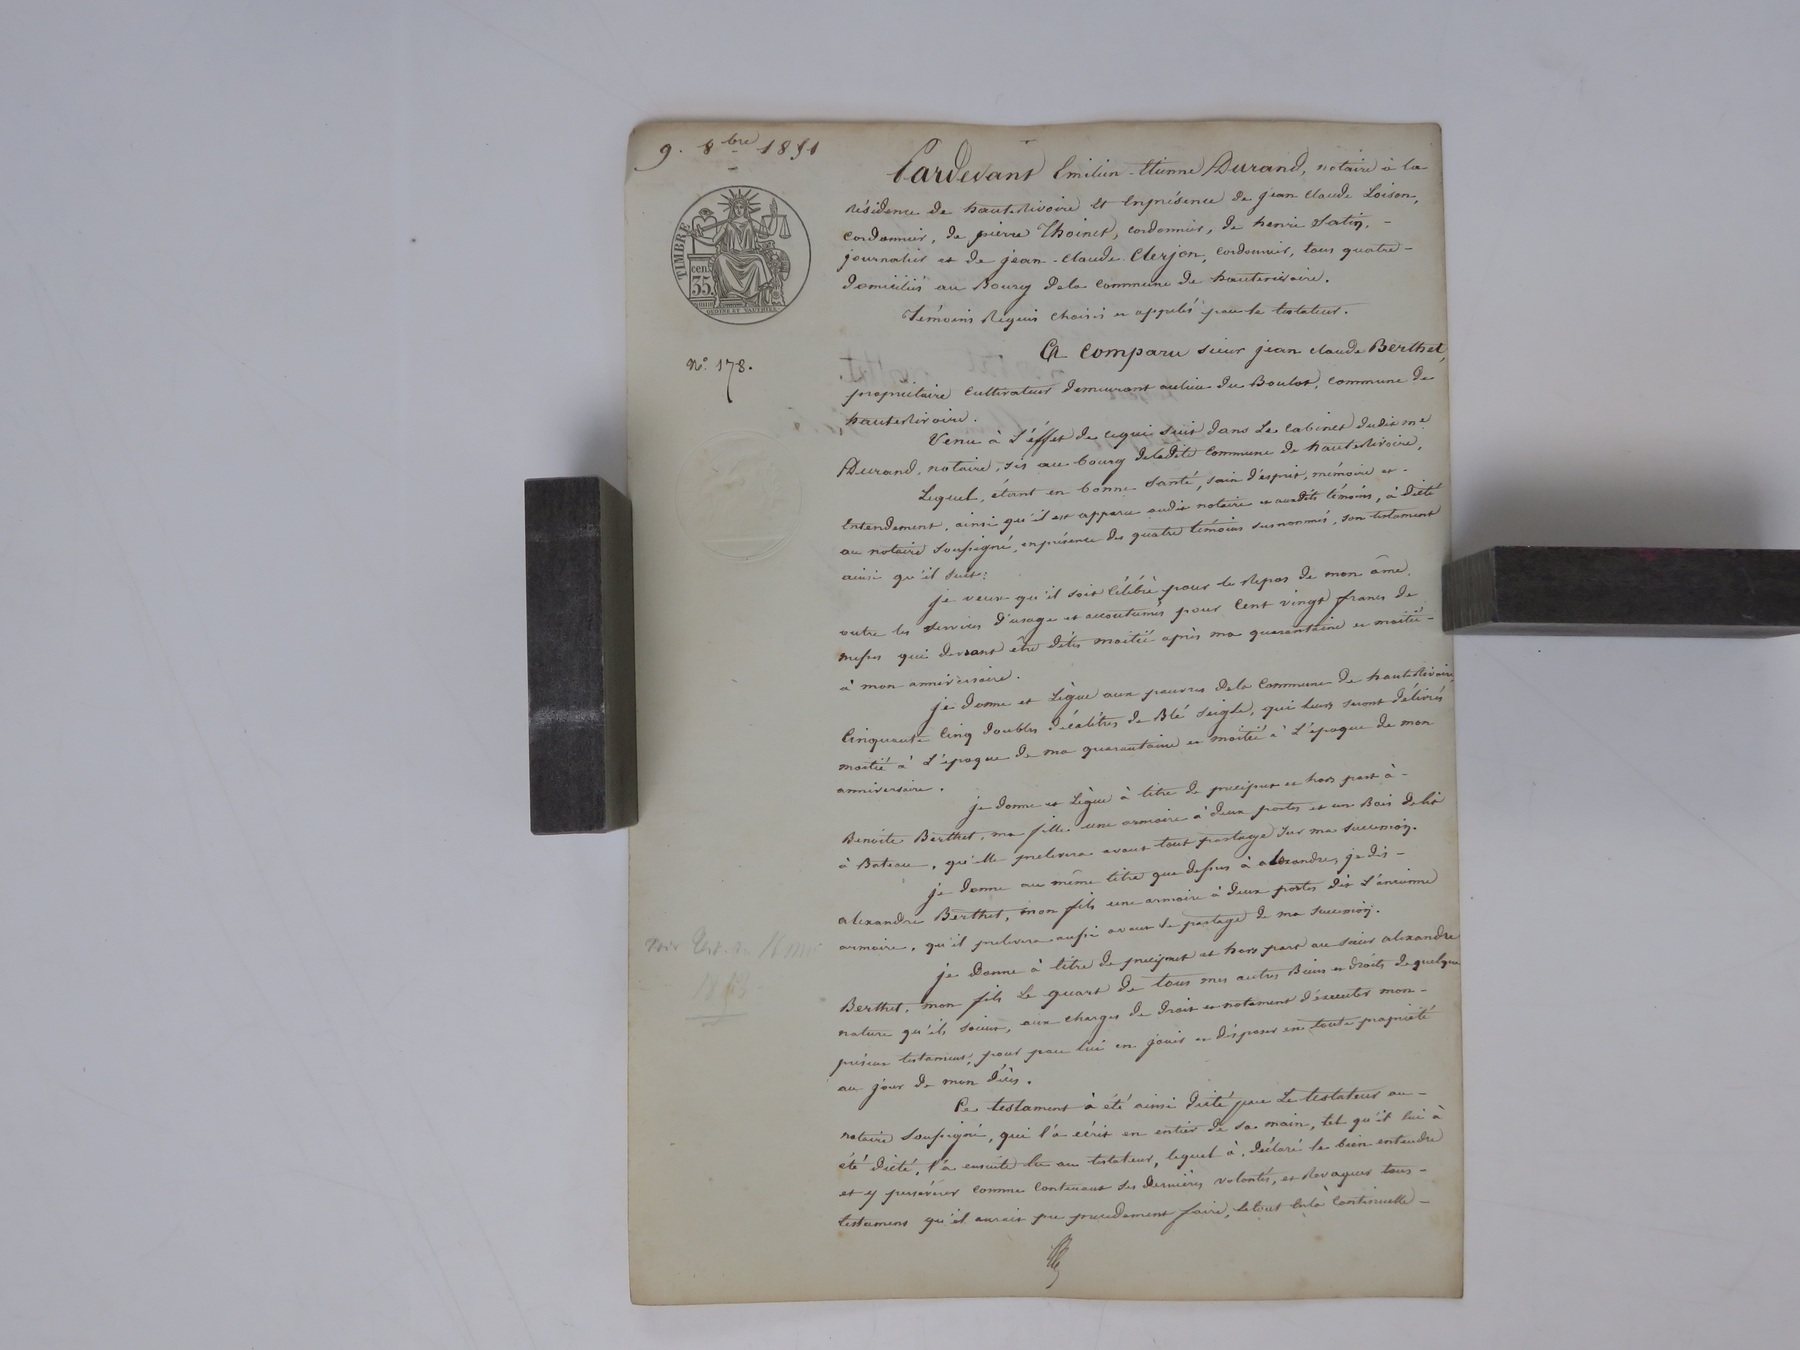 9. 8bre 1851
TIMBRE
cen. 35.
OUDINÉ ET VAUTHIER
N.º 178.
Pardevant Emilien-Etienne Durand, notaire à la
résidence de hauterivoire Et Enprésence de jean claude Loison,
cordonnier, de pierre Thoinet, cordonnier, de henri Satin, -
journalier et de jean-claude Clerjon, cordonnier, tous quatre -
domiciliés au Bourg dela commune de hauterivoire.
Témoins Requis choisis et appelés par le testateur.
A comparu sieur jean claude Berthet,
propriétaire cultivateur demeurant aulieu du Boulot, commune de
hauterivoire.
Venu à L'éffet de cequi suit dans Le cabinet dudit me
Durand, notaire, sis au bourg deladite commune de hauterivoire,
Lequel, étant en bonne santé, sain d'esprit, mémoire et -
Entendement, ainsi qu'il est apparu audit notaire et auxdits témoins, à dicté
au notaire soussigné, enprésence des quatre témoins susnommés, son testament
ainsi qu'il suit:
je veux qu'il soit célébré pour le Repos de mon âme,
outre les services d'usage et accoutumés pour Cent vingt francs de
messes qui devront être dites moitié après ma quarantaine et moitié -
à mon anniversaire.
je donne et Lègue aux pauvres dela Commune de hauterivoire,
Cinquante cinq doubles décalitres de Blé seigle, qui leurs seront délivrés
moitié à L'époque de ma quarantaine et moitié à L'époque de mon
anniversaire.
je donne et Lègue à titre de preciput et hors part à -
Benoite Berthet, ma fille une armoire à deux portes et un Bois delit
à Bateau, qu'elle prelevera avant tout partage sur ma succession.
je donne au même titre que dessus à alexandre, je dis -
alexandre Berthet, mon fils une armoire à deux portes dit L'ancienne
armoire, qu'il prelevera aussi avant le partage de ma succession.
je Donne à titre de preciput et hors part au sieur alexandre
Berthet, mon fils Le quart de tous mes autres Biens et droits de quelque
nature qu'ils soient, aux charges de droit et notament d'éxecuter mon -
présent testament, pour par lui en jouir et disposer en toute propriété
au jour de mon décès.
Ce testament à été ainsi dicté par Le testateur au -
notaire soussigné, qui l'a écrit en entier de sa main, tel qu'il lui à
été dicté, l'a ensuite lu au testateur, lequel à déclaré le bien entendre
et y persévérer comme contenant ses dernières volontés, et Revoquer tous -
testament qu'il aurait pu precedament faire, Letout Enla continuelle -